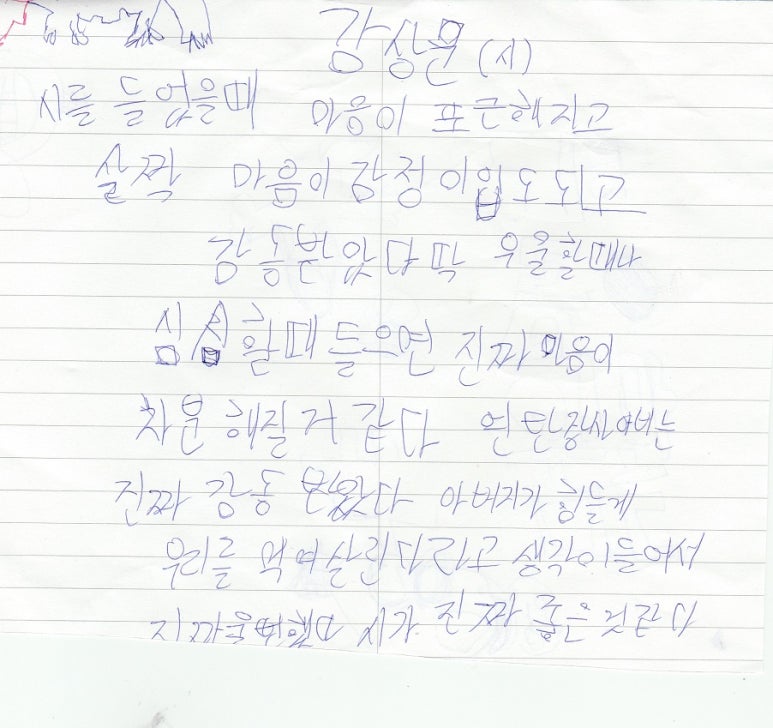 감상문 (시)
시를 들었을때 마음이 포근해지고
살짝 마음이 감정 이입도 되고
감동받았다 딱 우울할때나
심심할때 들으면 진짜 마음이
차분해질거 같다 연탄장사
진짜 감동 받았다 아버지가 힘들게
우리를 먹여살린다라고 생각이들어서
시가 진짜 좋은것같다